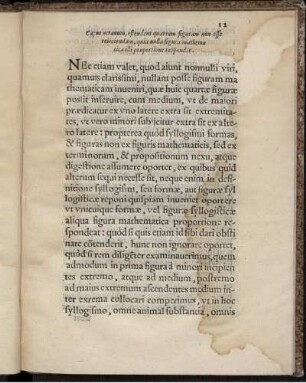 12
NEc etiam valet, quod aiunt nonnulli viri,
quamuis clarissimi, nullam posse figuram ma
thematicam inueniri, quæ huic quartæ figuræ
possit inseruire, cum medium, vt de maiori
prædicatur ex vno latere extra sit extremita-
tes, vt vero minori subijcitur extra sit ex alte-
ro latere: propterea quòd syllogismi formas,
& figuras non ex figuris mathematicis, sed ex
terminorum, & propositionum nexu, atque
digestione assumere oportet, ex quibus quid
alterum sequi necesse sit, neque enim in defi-
nitione syllogismi, seu formæ, aut figuræ syl
logisticæ reponi quispiam inueniet oportere
vt vnicuique formæ, vel figuræ syllogisticæ
aliqua figura mathematica proportione re-
spondeat: quòd si quis etiam id sibi dari obsti
nate cõtenderit, hunc non ignorare oportet,
quòd si rem diligẽter examinauerimus, quem
admodum in prima figura à minori incipien
tes extremo, atque ad medium, postremo
ad maius extremum ascendentes medium in-
ter extrema collocari comperimus, vt in hoc
syllogismo, omne animal substantia, omnis